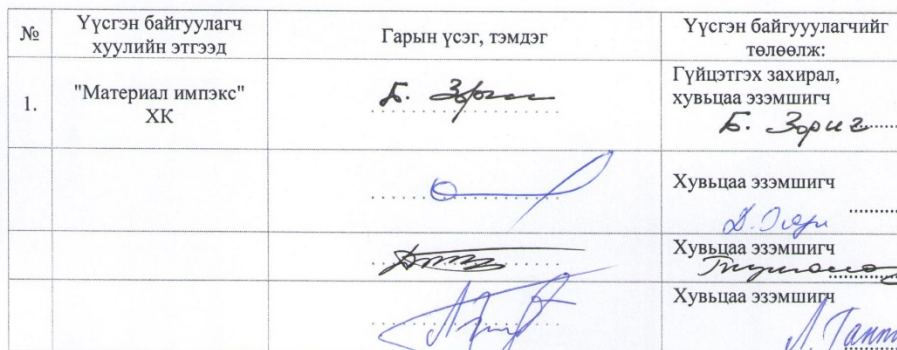 №
Үүсгэн байгуулагч
хуулийн этгээд
Гарын үсэг, тэмдэг
Үүсгэн байгууулагчийг
төлөөлж:
1.
"Материал импэкс"
ХК
Б. Зориг
Гүйцэтгэх захирал,
хувьцаа эзэмшигч
Б. Зориг
Хувьцаа эзэмшигч
Хувьцаа эзэмшигч
Хувьцаа эзэмшигч